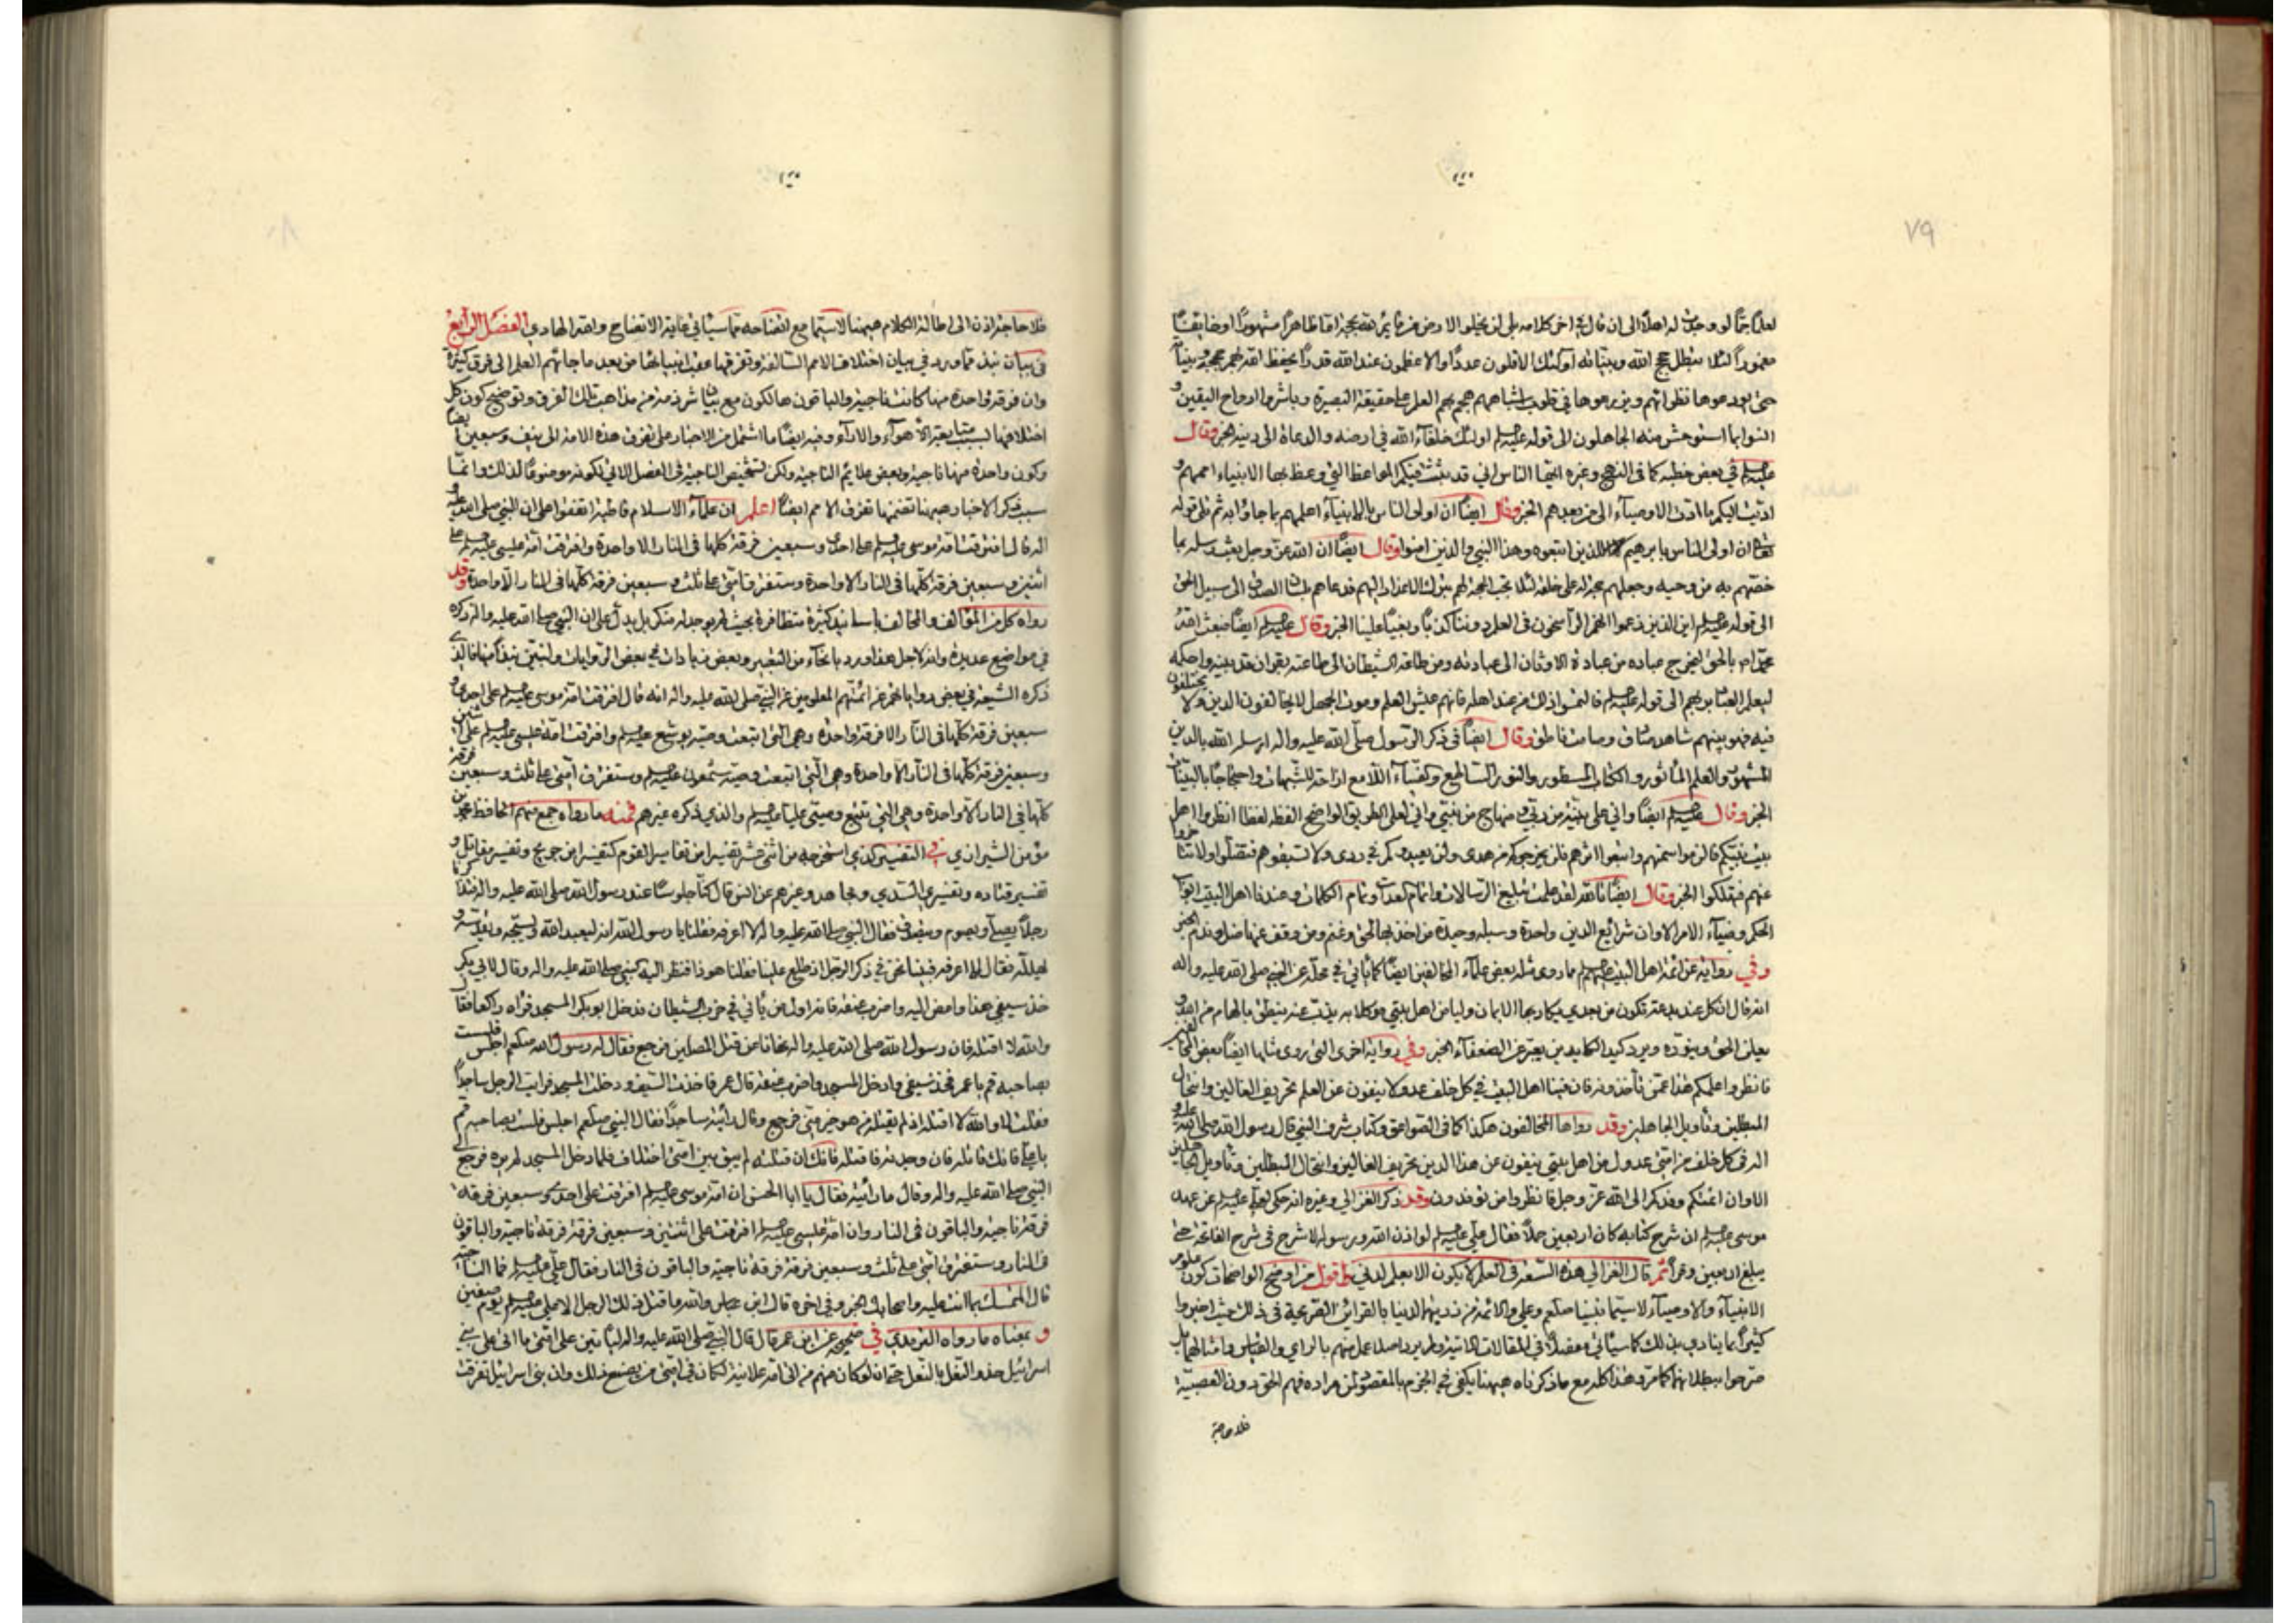 ٧٩
لعلمًا جمًّا لو وجدت له اهلًا الى ان قال في اخر كلامه بلى لن يخلو الارض من قائم لله بحجة اما ظاهرًا مشهورًا او خائفًا
مغمورًا لئلا تبطل حجج الله وبيناته اولئك الاقلون عددًا والاعظمون عند الله قدرًا يحفظ الله بهم حججه وبيناته
حتى يودعوها نظرائهم ويزرعوها في قلوب اشباههم هجم بهم العلم على حقيقة البصيرة وباشروا ارواح اليقين و
انسوا بما استوحش منه الجاهلون الى قوله عليه السلم اولئك خلفآء الله في ارضه والدعاة الى دينه الخبر وقال
عليه السلم في بعض خطبه كما في النهج وغيره ايها الناس اني قد بثثت فيكم المواعظ التي وعظ بها الانبياء اممهم و
اديت اليكم ما ادت الاوصيآء الى من بعدهم الخبر وقال ايضًا ان اولى الناس بالانبيآء اعلمهم بما جاؤا به ثم تلى قوله
ان اولى الناس بابرهيم للذين اتبعوه وهذا النبي والذين امنوا وقال ايضًا ان الله عز وجل بعث رسله بما
خصهم به من وحيه وجعلهم حجة له على خلقه لئلا تجب الحجة لهم بترك الاعذار اليهم فدعاهم بلسان الصدق الى سبيل الحق
الى قوله عليه السلم اين الذين زعموا انهم الراسخون في العلم دوننا كذبًا وبغيًا علينا الخبر وقال عليه السلم ايضًا فبعث الله
محمدًا ص بالحق ليخرج عباده من عبادة الاوثان الى عبادته ومن طاعة الشيطان الى طاعته بقران قد بينه واحكمه
ليعلم العباد ربهم الى قوله عليه السلم فالتمسوا ذلك من عند اهله فانهم عيش العلم وموت الجهل لا يخالفون الدين ولا يختلفون
فيه فهو بينهم شاهد صادق وصامت ناطق وقال ايضًا في ذكر الرسول صلى الله عليه واله ارسله الله بالدين
المشهور والعلم المأثور والكتاب المسطور والنور الساطع والضياء اللامع ازاحة للشبهات واحتجاجًا بالبينات
الخبر وقال عليه السلم ايضًا واني على بينة من ربي ومنهاج من نبيي واني لعلى الطريق الواضح القطه لقطا انظروا اهل
بيت نبيكم فالزموا سمتهم واتبعوا اثرهم فلن يخرجوكم من هدى ولن يعيدوكم في ردى ولا تسبقوهم فتضلوا ولا تتأخروا
عنهم فتهلكوا الخبر وقال ايضًا تالله لقد علمت تبليغ الرسالات واتمام العدات وتمام الكلمات وعندنا اهل البيت ابواب
الحكم وضيآء الامر الا وان شرائع الدين واحدة وسبله من اخذ بها لحق وغنم ومن وقف عنها ضل وندم الخبر
وفي رواية عن ائمة اهل البيت عليهم السلم ما روى مثله بعض علمآء المخالفين ايضًا كما يأتي في محله عن النبي صلى الله عليه واله
انه قال ان لكل عند بدعة تكون من بعدي يكاد بها الايمان وليا من اهل بيتي موكلا به يذب عنه ينطق بالهام من الله و
يعلن الحق وينوره ويرد كيد الكايدين يعبر عن الضعفآء الخبر وفي رواية اخرى التي روى مثلها ايضًا بعض المخالفين
فانظروا علمكم هذا عمن تأخذونه فان فينا اهل البيت في كل خلف عدولا ينفون عن العلم تحريف الغالين وانتحال
المبطلين وتأويل الجاهلين وقد رواها المخالفون هكذا كما في الصواعق وكتاب شرف النبي قال رسول الله صلى الله عليه و
اله في كل خلف من امتي عدول من اهل بيتي ينفون عن هذا الدين تحريف الغالين وانتحال المبطلين وتأويل الجاهلين
الا وان ائمتكم وفدكم الى الله عز وجل فانظروا من توفدون وقد ذكر الغزالي وغيره انه حكى علي عليه السلم عن عهد
موسى عليه السلم ان شرح كتابه كان اربعين حملًا فقال علي عليه السلم لو اذن الله ورسوله لاشرح في شرح الفاتحة حتى
يبلغ اربعين وقرًا ثم قال الغزالي هذه السعة في العلم لا يكون الا بعلم لدني واقول من اوضح الواضحات كون علوم
الانبيآء والاوصيآء لا سيما نبينا صلعم وعلي والائمة من ذريتهما لدينا بالقرائن الصريحة في ذلك حيث اخبروا
كثيرًا بما ينادي بذلك كما سيأتي مفصلًا في المقالات الاتية ولم يرد اصلا عمل منهم بالراي والقياس وامثالهما بل
صرحوا ببطلانهما كما مر وهذا كله مع ما ذكرناه ههينا يكفي في الجزم بالمقصود لمن مراده فهم الحق دون العصبية
فلا حاجة
٨٠
فلا حاجة اذن الى اطالة الكلام ههينا لا سيما مع اتضاحه مما سيأتي غاية الاتضاح والله الهادي الفصل الرابع
في بيان نبذ مما ورد في بيان اختلاف الامم السالفة وتفرقها عقيب انبيائها من بعد ما جائهم العلم الى فرق كثيرة
وان فرقة واحدة منها كانت ناجية والباقون هالكون مع بيان شرذمة من مذاهب تلك الفرق وتوضيح كون كل
اختلافها لسبب متابعة الاهوآء والارآء وفيه ايضًا ما اشتمل من الاخبار على تفرق هذه الامة الى نيف وسبعين ايضًا
وكون واحدة منها ناجية وبعض علايم الناجية ولكن تشخيص الناجية في الفصل الاتي لكونه موضوعًا لذلك وانما
سبب ذكر الاخبار ههينا تضمنها تفرق الامم ايضًا اعلم ان علمآء الاسلام قاطبة اتفقوا على ان النبي صلى الله عليه و
اله قال افترقت امة موسى عليه السلم على احدى وسبعين فرقة كلها في النار الا واحدة وافترقت امة عيسى عليه السلم على
اثنين وسبعين فرقة كلها في النار الا واحدة وستفترق امتي على ثلث وسبعين فرقة كلها في النار الا واحدة وقد
رواه كل من المؤالف والمخالف باسانيد كثيرة متظافرة بحيث لم يوجد له منكر بل يدل على ان النبي صلى الله عليه واله ذكره
في مواضع عديدة وانه لاجل هذا ورد بانحآء من التعبير وبعض زيادات في بعض الروايات ولنبين نبذًا منها فالذي
ذكره الشيعة في بعض رواياتهم عن ائمتهم المعلومين عن النبي صلى الله عليه واله انه قال افترقت امة موسى عليه السلم على احدى و
سبعين فرقة كلها في النار الا فرقة واحدة وهي التي اتبعت وصيه يوشع عليه السلم وافترقت امة عيسى عليه السلم على اثنين
وسبعين فرقة كلها في النار الا واحدة وهي التي اتبعت وصيه شمعون عليه السلم وستفترق امتي على ثلث وسبعين فرقة
كلها في النار الا واحدة وهي التي تتبع وصيي عليًا عليه السلم والذي ذكره غيرهم فمنه ما رواه جمع منهم الحافظ محمد بن
مؤمن الشيرازي في التفسير الذي استخرجه من اثنى عشر تفسيرا من تفاسير القوم كتفسير ابن جريج وتفسير مقاتل و
تفسير قتاده وتفسير السدي ومجاهد وغيرهم عن انس قال كنا جلوسًا عند رسول الله صلى الله عليه واله فتذاكرنا
رجلًا يصلي ويصوم ويتصدق فقال النبي صلى الله عليه واله لا اعرفه فقلنا يا رسول الله انه ليعبد الله ويسبحه ويقدسه و
يهلله فقال لا اعرفه فبينا نحن في ذكر الرجل اذ طلع علينا فقلنا هو ذا فنظر اليه النبي صلى الله عليه واله وقال لابي بكر
خذ سيفي هذا وامض اليه واضرب عنقه فانه اول من يأتي في حزب الشيطان فدخل ابو بكر المسجد فراه راكعا فقال
والله لا اقتله فان رسول الله صلى الله عليه واله نهانا عن قتل المصلين فرجع فقال له رسول الله صلعم اجلس فلست
بصاحبه قم يا عمر فخذ سيفي وادخل المسجد واضرب عنقه قال عمر فاخذت السيف ودخلت المسجد فرايت الرجل ساجدًا
فقلت لا والله لا اقتله اذ لم يقتله من هو خير مني فرجع وقال رأيته ساجدًا فقال النبي صلعم اجلس فلست بصاحبه قم
يا علي فانك قاتله فان وجدته فاقتله فانك ان قتلته لم يبق بين امتي اختلاف فلما دخل المسجد لم يره فرجع الى
النبي صلى الله عليه واله وقال ما رأيته فقال يا ابا الحسن ان امة موسى عليه السلم افترقت على احدى وسبعين فرقة
فرقة ناجية والباقون في النار وان امة عيسى عليه السلم افترقت على اثنتين وسبعين فرقة فرقة ناجية والباقون
في النار وستفترق امتي على ثلث وسبعين فرقة فرقة ناجية والباقون في النار فقال علي عليه السلم فما الناجية
قال المتمسك بما انت عليه واصحابك الخبر وفي اخره قال ابن عباس والله ما قتل ذلك الرجل الا علي عليه السلم يوم صفين
و بمعناه ما رواه الترمذي في صحيحه عن ابن عمر قال قال النبي صلى الله عليه واله ليأتين على امتي ما اتى على بني
اسرائيل حذو النعل بالنعل حتى ان لو كان منهم من اتى امه علانية لكان في امتي من يصنع ذلك وان بني اسرائيل تفرقت